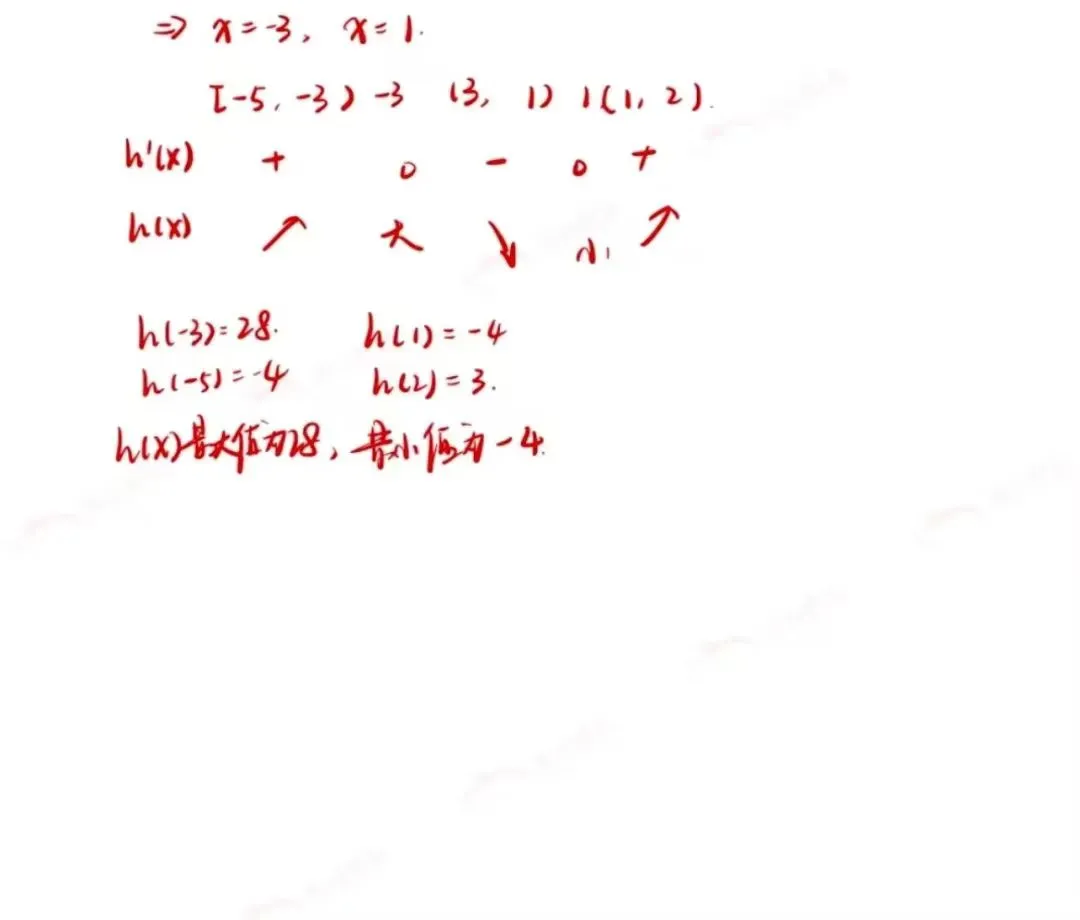 ⇒ x=-3, x=1.
[-5, -3) -3 (3, 1) 1 (1, 2).
h'(x) + 0 - 0 +
h(x) ↗ 大 ↘ 小 ↗
h(-3)=28. h(1)=-4
h(-5)=-4 h(2)=3.
h(x)最大值为28, 最小值为-4.